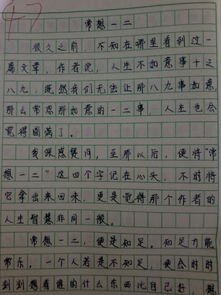 47
常想一二
很久之前,不知在哪里看到过一
篇文章,作者说,人生不如意事十之
八九,既然我们无法让那八九事如意,
那么常想那如意的一二事,人生也会
觉得圆满了。
我深感赞同,至那以后,便将“常
想一二”这四个字记在心头,不时将
它拿出来回味,更是觉得那个作者的
人生智慧非同一般。
常想一二,便是知足。知足方能
常乐,一个人若是不知足,便会时时
刻刻想着谁的什么东西比自己好,